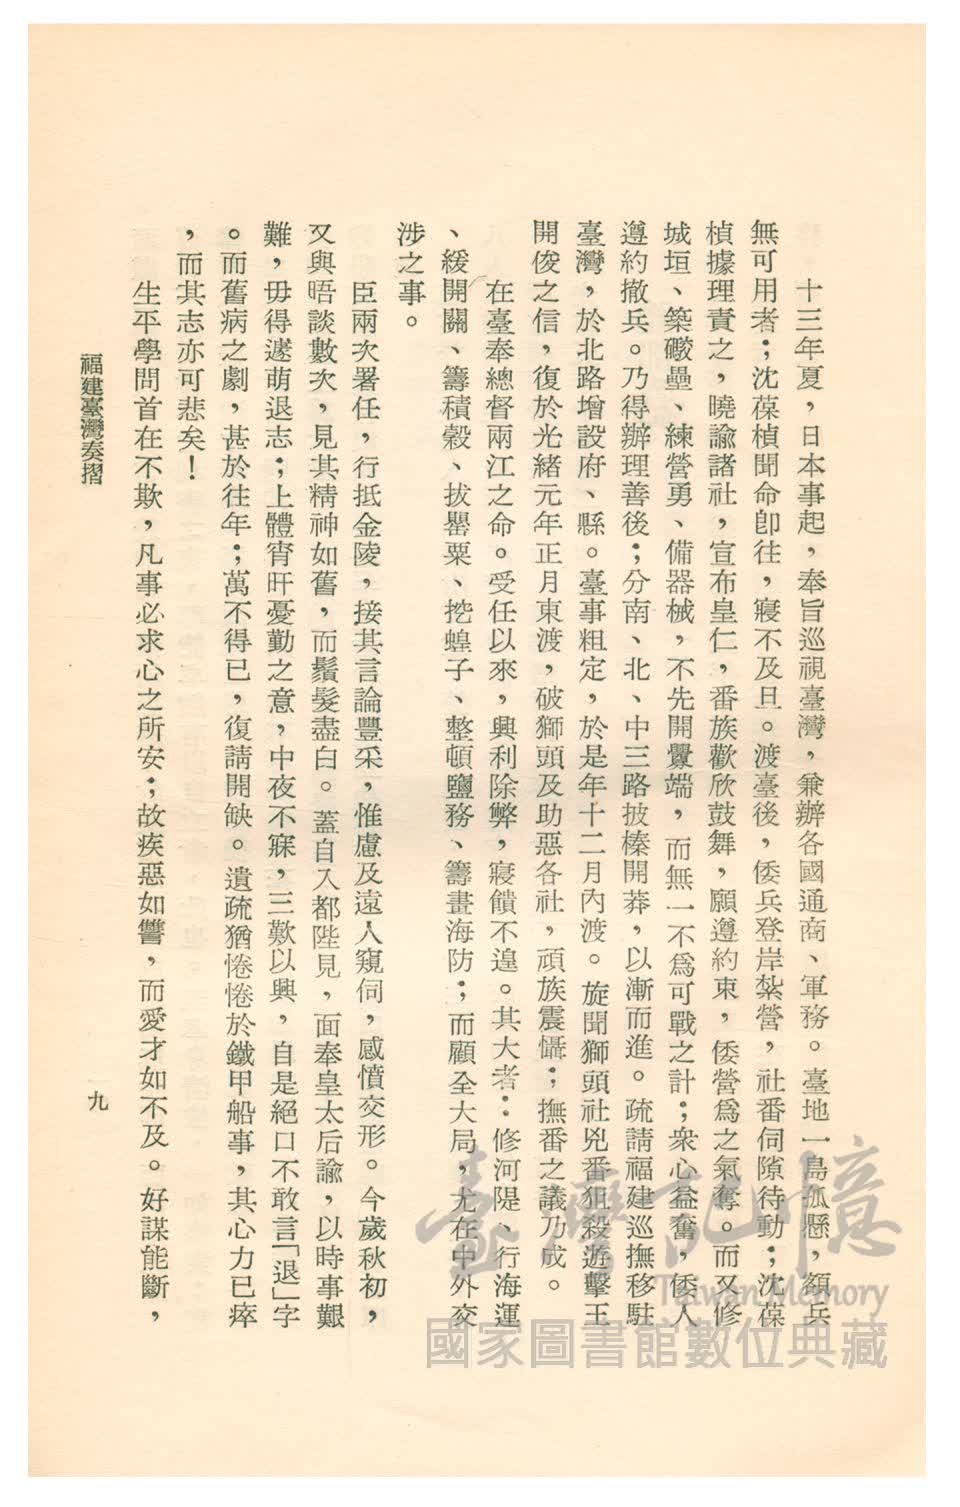 十三年夏，日本事起，奉旨巡視臺灣，兼辦各國通商、軍務。臺地一島孤懸，額兵
無可用者；沈葆楨聞命卽往，寢不及旦。渡臺後，倭兵登岸紮營，社番伺隙待動；沈葆
楨據理責之，曉諭諸社，宣布皇仁，番族歡欣鼓舞，願遵約束，倭營爲之氣奪。而又修
城垣、築礮壘、練營勇、備器械，不先開釁端，而無一不爲可戰之計；衆心益奮，倭人
遵約撤兵。乃得辦理善後；分南、北、中三路披榛開莽，以漸而進。疏請福建巡撫移駐
臺灣，於北路增設府、縣。臺事粗定，於是年十二月內渡。旋聞獅頭社兇番狙殺遊擊王
開俊之信，復於光緒元年正月東渡，破獅頭及助惡各社，頑族震懾；撫番之議乃成。
在臺奉總督兩江之命。受任以來，興利除弊，寢饋不遑。其大者：修河隄、行海運
、緩開關、籌積穀、拔罌粟、挖蝗子、整頓鹽務、籌畫海防；而顧全大局，尤在中外交
涉之事。
臣兩次署任，行抵金陵，接其言論豐采，惟慮及遠人窺伺，感憤交形。今歲秋初，
又與晤談數次，見其精神如舊，而鬚髮盡白。蓋自入都陛見，面奉皇太后諭，以時事艱
難，毋得遽萌退志；上體宵旰憂勤之意，中夜不寐，三歎以興，自是絕口不敢言「退」字
。而舊病之劇，甚於往年；萬不得已，復請開缺。遺疏猶惓惓於鐵甲船事，其心力已瘁
，而其志亦可悲矣！
生平學問首在不欺，凡事必求心之所安；故疾惡如讐，而愛才如不及。好謀能斷，
福建臺灣奏摺
九
臺灣記憶
Taiwan Memory
國家圖書館數位典藏